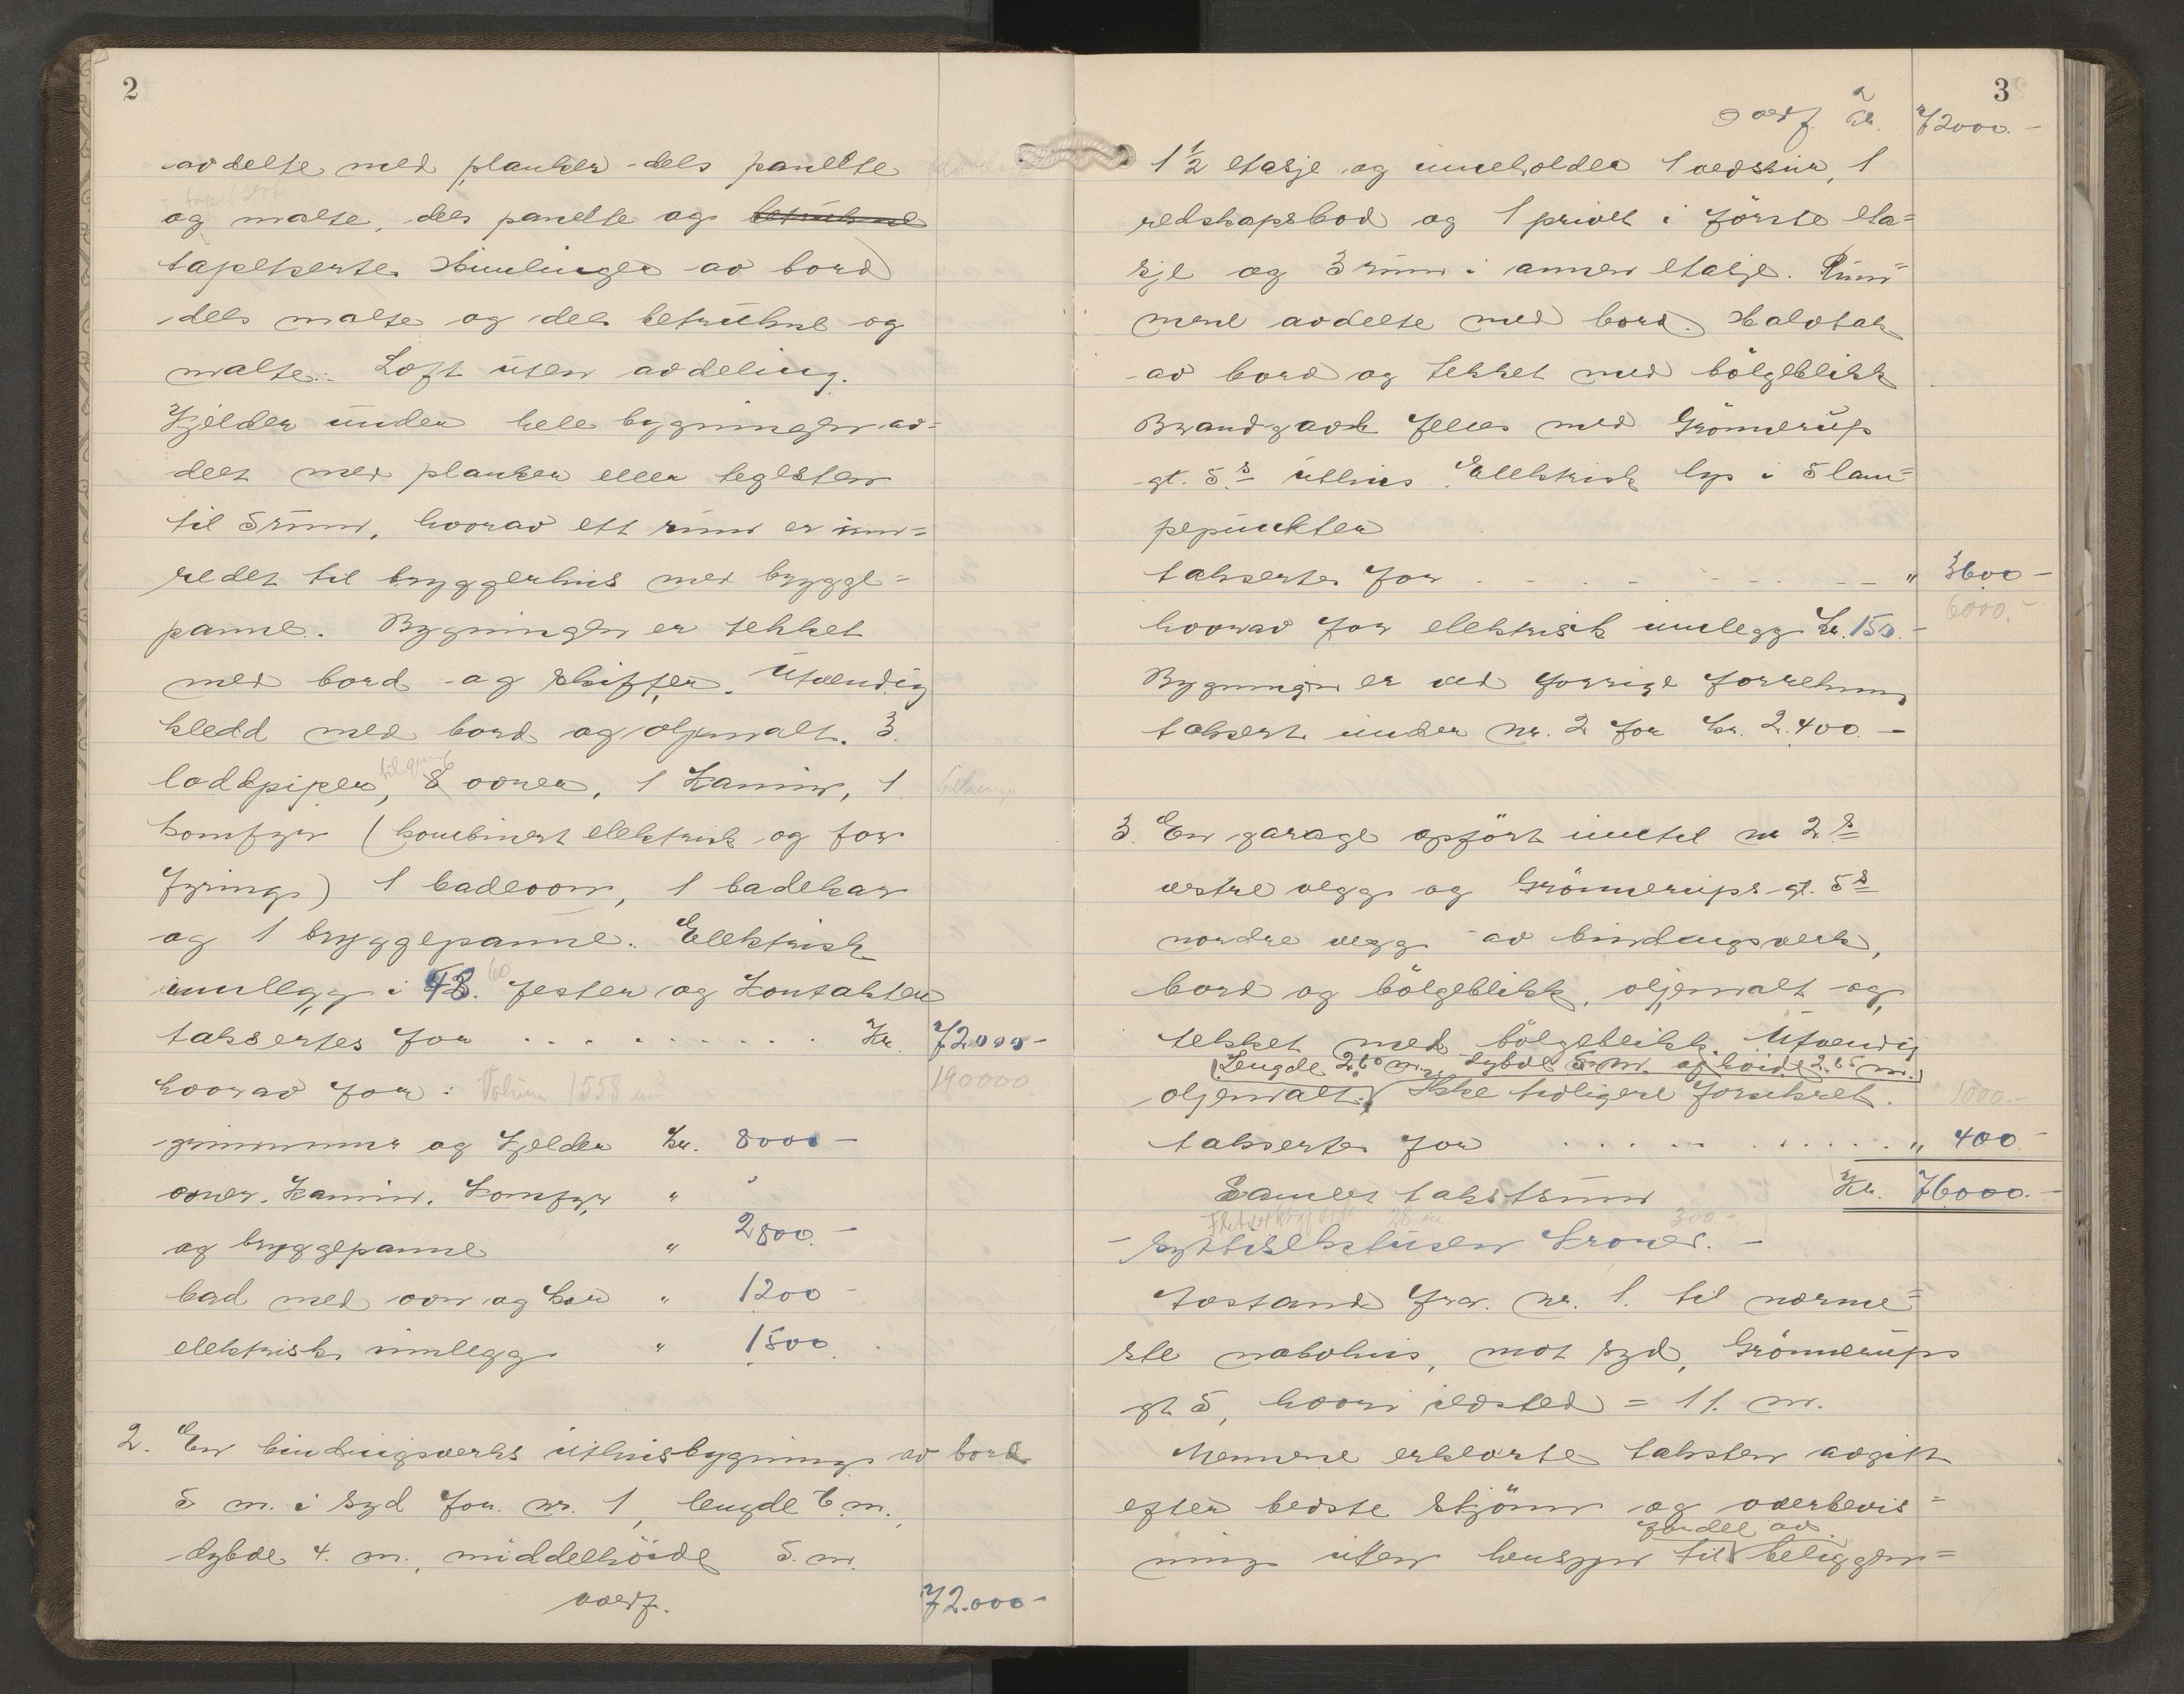 2
avdelte med planker dels panelte
og malte, dels panelte og betrukne
tapetserte. Himlinger av bord
dels malte og dels betrukne og
malte. Loft uten avdeling.
Kjelder under hele bygningen av=
delt med planker eller teglsten
til 5 rum, hvorav ett rum er inn=
redet til bryggerhus med brygge=
panne. Bygningen er tekket
med bord og skiffer. Utvendig
kledd med bord og oljemalt. 3
loddpiper, 8 ovner, 1 Kamin, 1
komfyr (kombinert elektrisk og for
fyring) 1 badeovn, 1 badekar
og 1 bryggepanne. Elektrisk
innlegg i 48. 60 fester og Kontakter
takseres for . . . . . . . . . Kr. 72.000-
hvorav for: Volum 1558 m³ 190000
grunnmur og Kjelder Kr. 8000-
ovner, Kamin, Komfyr "
og bryggepanne " 2800.-
bad med ovn og kar " 1200-
elektrisk innlegg " 1500
2. En bindingsverks uthusbygning av bord
5 m. i syd for nr. 1, lengde 6 m.,
dybde 4. m., middelhöide 5. m.
overf. 72.000-
3
overf. Kr. 72000.-
1 1/2 etasje og inneholder 1 vedskur, 1
redskapsbod og 1 privet i förste eta=
sje og 3 rum i annen etasje. Rum=
mene avdelte med bord. Halvtak
av bord og tekket med bölgeblikk
Brandgavl felles med Grönnerup
gt. 5s uthus. Elektrisk lys i 5 lam=
pepunkter
takseres for - - - - - - - " 3600-
6000.-
hvorav for elektrisk innlegg Kr. 150.-
Bygningen er ved forrige forretning
taksert under nr. 2 for kr. 2.400.-
3. En garage opfört inntil nr 2s
vestre vegg og Grönnerups gt. 5s
nordre vegg av bindingsverk,
bord og bölgeblikk, oljemalt og
tekket med bölgeblikk. Utvendig
(Lengde 2.60 m., dybde 5 m. og höide 2.65 m.)
oljemalt. Ikke tidligere forsikret. 1000.-
takseres for . . . . . . . . . " 400.-
Samlet takstsum Kr. 76000.-
28 m 300.-
- Syttisekstusen Kroner. -
Avstand fra nr. 1. til nerme=
ste nabohus, mot syd, Grönnerups
gt 5, hvori ildsted = 11. m.
Mennene erklærte taksten avgitt
efter bedste skjönn og overbevis=
ning uten hensyn til fordel av beliggen=